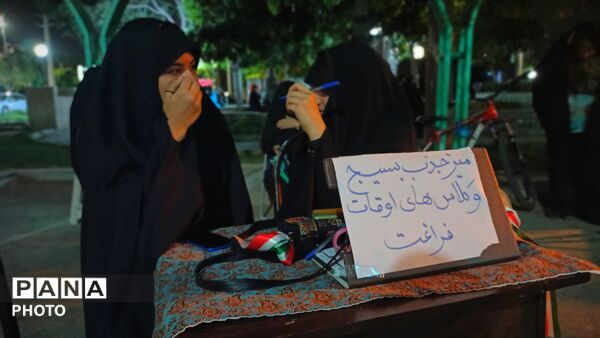 میز جذب بسیج
و کلاس های اوقات
فراغت
PANA
PHOTO